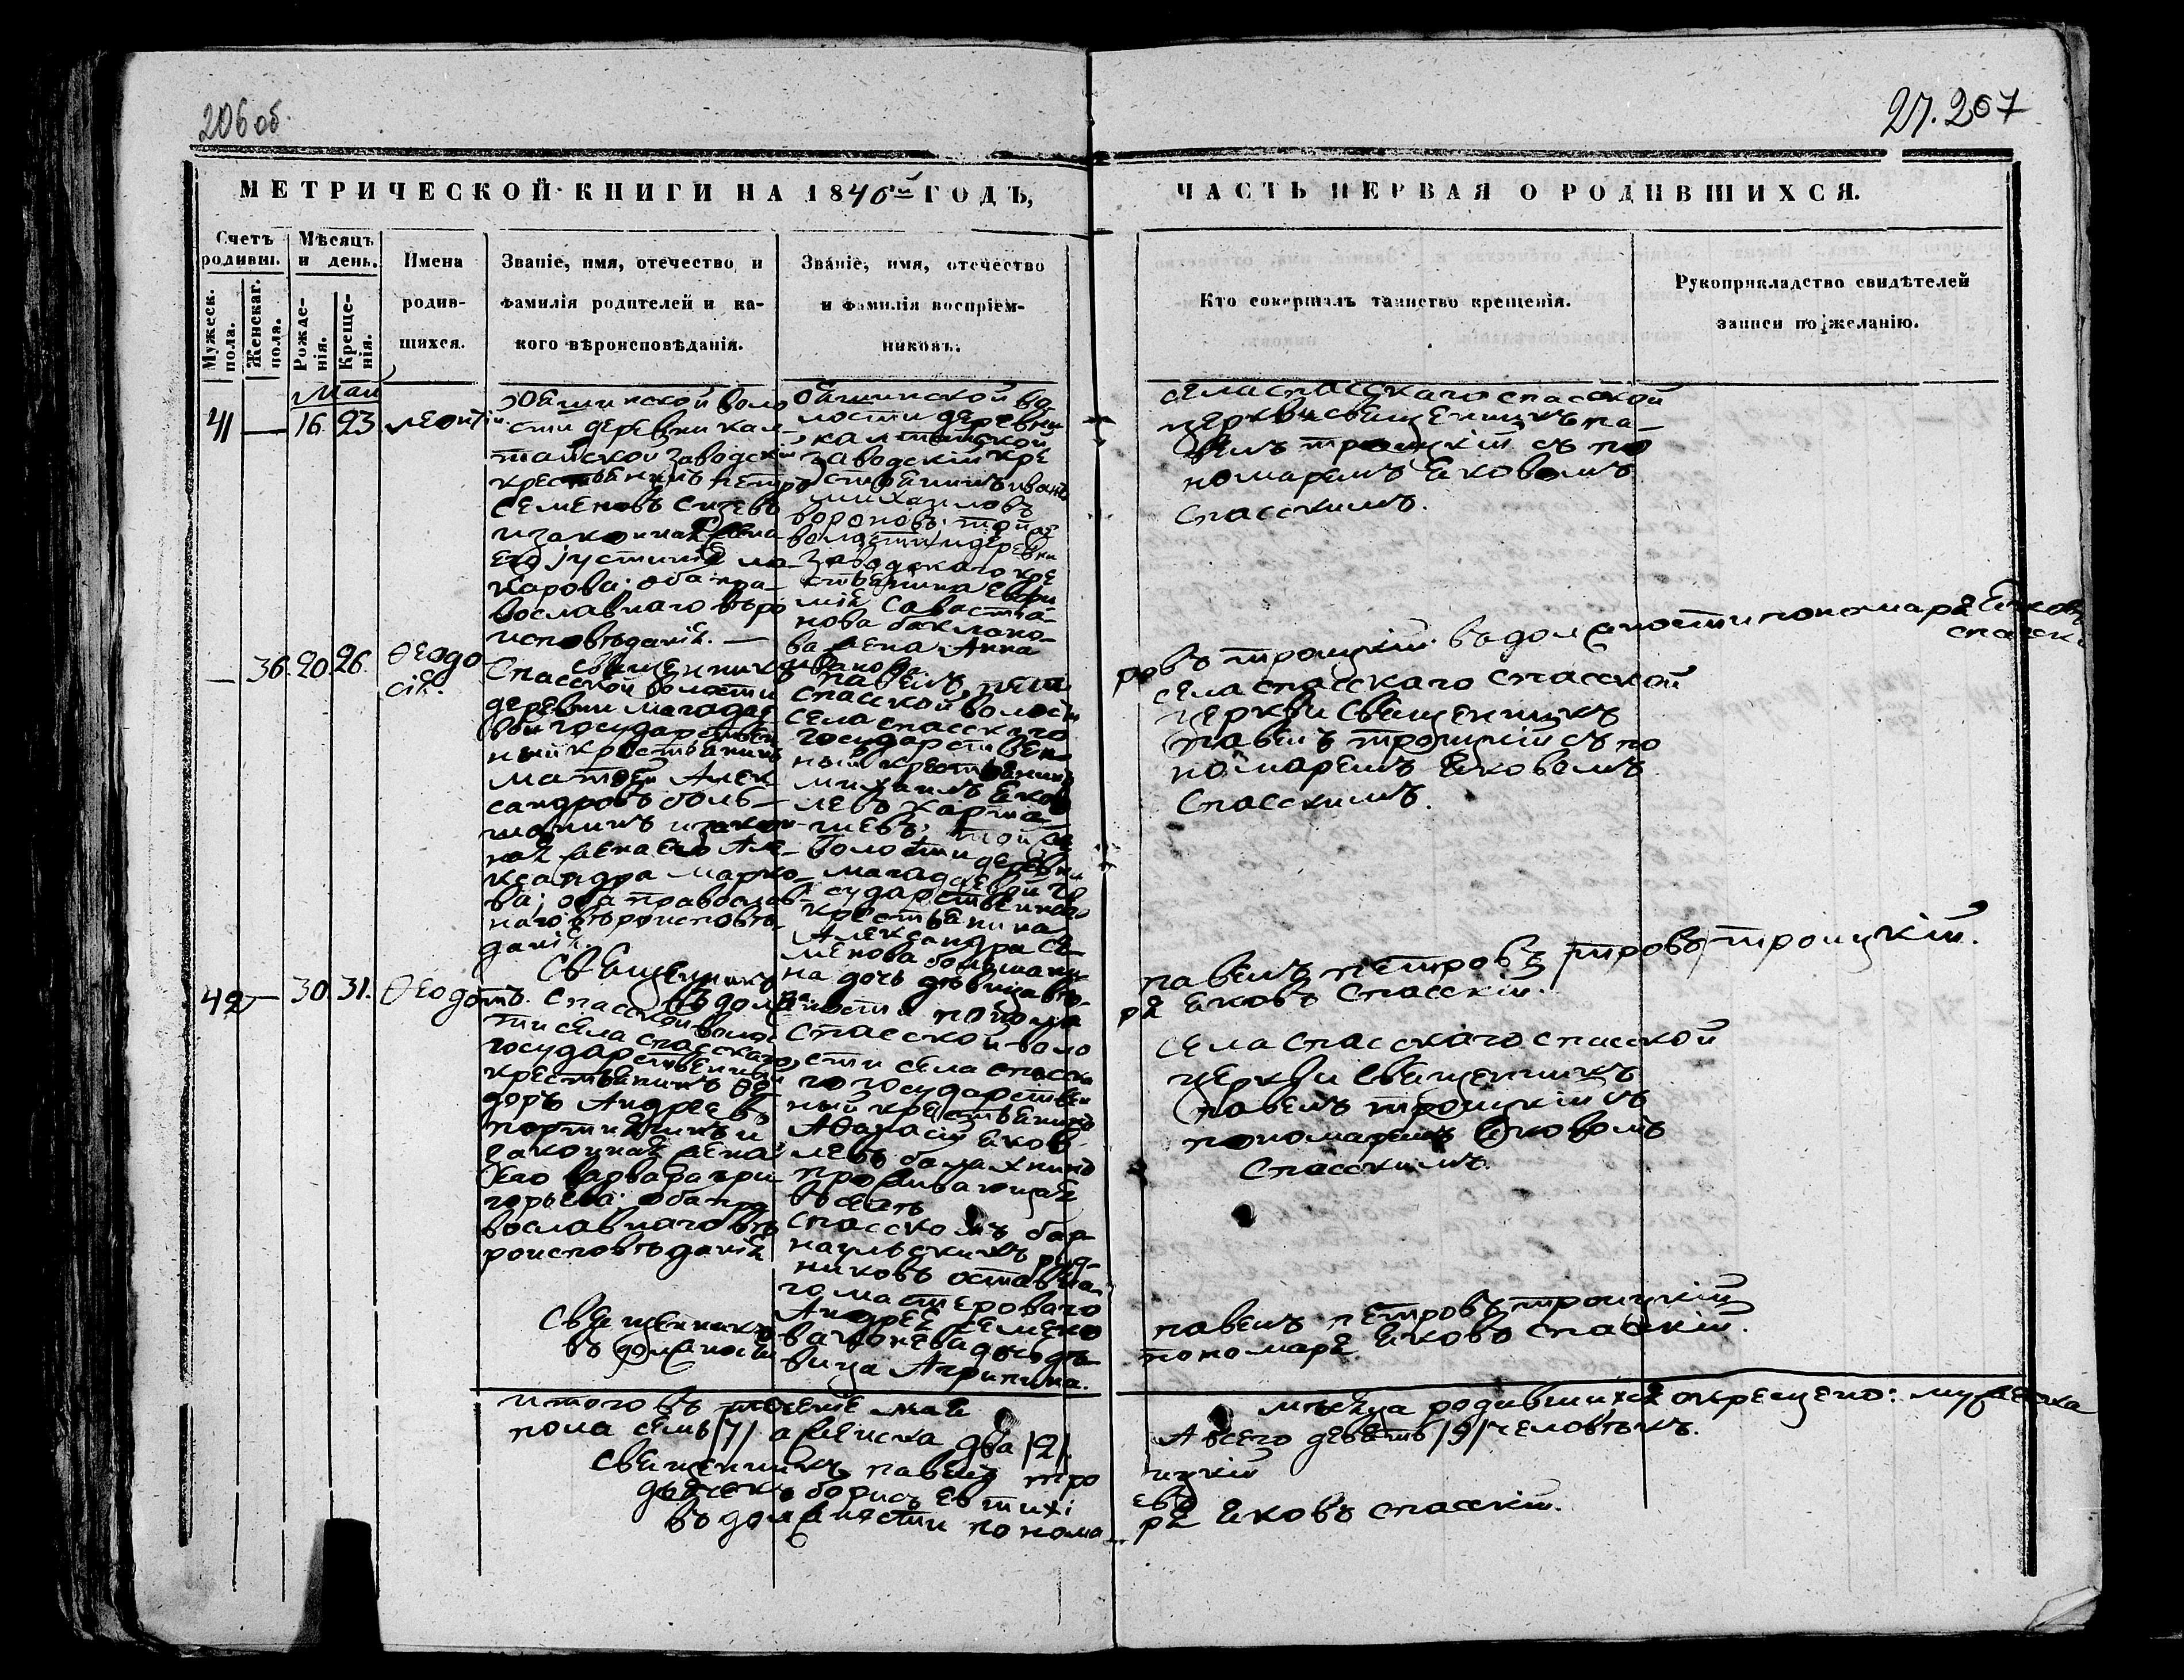 206 об.
27. 207
МЕТРИЧЕСКОЙ КНИГИ НА 1846й ГОДЪ,
ЧАСТЬ ПЕРВАЯ О РОДИВШИХСЯ.
Счетъ родивш.
Мужеск. пола.
Женскаг. пола.
Мѣсяцъ и день.
Рожде-нія.
Креще-нія.
Имена
родив-
шихся.
Званіе, имя, отечество и
фамилія родителей и ка-
кого вѣроисповѣданія.
Званіе, имя, отечество
и фамилія воспріем-
никовъ.
Кто совершалъ таинство крещенія.
Рукоприкладство свидѣтелей
записи по желанію.
Маи
41 — 16. 23. Леонтій
волo
сти деревни Кал-
тайской заводскій
крестьянинъ Петръ
Семеновъ
и законная жена
его Іустинія Ма-
карова; оба пра-
вославнаго вѣро
исповѣданія. —
во
лости деревни
Калтайской
заводскій кре
стьянинъ Иванъ
Михаиловъ
Вороновъ. той же
волости и деревни
заводскаго кре
стьянина
мія Савастіа-
нова
жена Анна
Иванова.
села Спасскаго Спасской
церкви священникъ Па-
велъ Троицкій съ по
номаремъ Яковомъ
Спасскимъ.
Священникъ Павелъ Пет
ровъ Троицкій. въ должности пономаря Яковъ
Спасскі
— 36. 20. 26. Ѳеодо
сія.
Спасской волости
деревни
вой государствен
ный крестьянинъ
Матѳей Алек
сандровъ Боль-
шанинъ и закон-
ная жена его Але-
ксандра Марко-
ва; оба православ-
наго вѣроисповѣ-
данія.
Спасской волости
села Спасскаго
государствен-
ный крестьянинъ
Михаилъ Яков
левъ
той же
волости деревни
го
сударственнаго
крестьянина
Александра Се-
менова Большани-
на дочь дѣвица
села Спасскаго Спасской
церкви священникъ
Павелъ Троицкій съ по
номаремъ Яковомъ
Спасскимъ.
Священникъ Павелъ Петровъ /тровъ/ Троицкій.
въ должности понома
ря Яковъ Спасскій.
42 — 30. 31. Ѳеодотъ.
Спасской волос
ти села Спасскаго
государственный
крестьянинъ Ѳе
доръ Андреевъ
и
законная жена
его Варвара Гри
горьева; оба пра
вославнаго вѣ
роисповѣданія
Спасской воло
сти села Спасска
го государствен
ный крестьянинъ
Аѳанасій Яков-
левъ Балахнинъ
проживающая
въ селѣ
Спасскомъ Бар-
наульскихъ руд-
никовъ
Андрея Семено
ва дочь дѣ-
вица Агрипина.
села Спасскаго Спасской
церкви священникъ
Павелъ Троицкій съ
пономаремъ Яковомъ
Спасскимъ.
Священникъ Павелъ Петровъ Троицкій
въ должности пономаря Яковъ Спасскій.
Итого въ теченіе мая мѣсяца родившихся окрещено: мужеска
пола семь /7/ а женска два /2/. А всего девять /9/ человѣкъ.
Священникъ Павелъ Троицкій
дьячекъ Борисъ Евтихіевъ
въ должности пономаря Яковъ Спасскій.